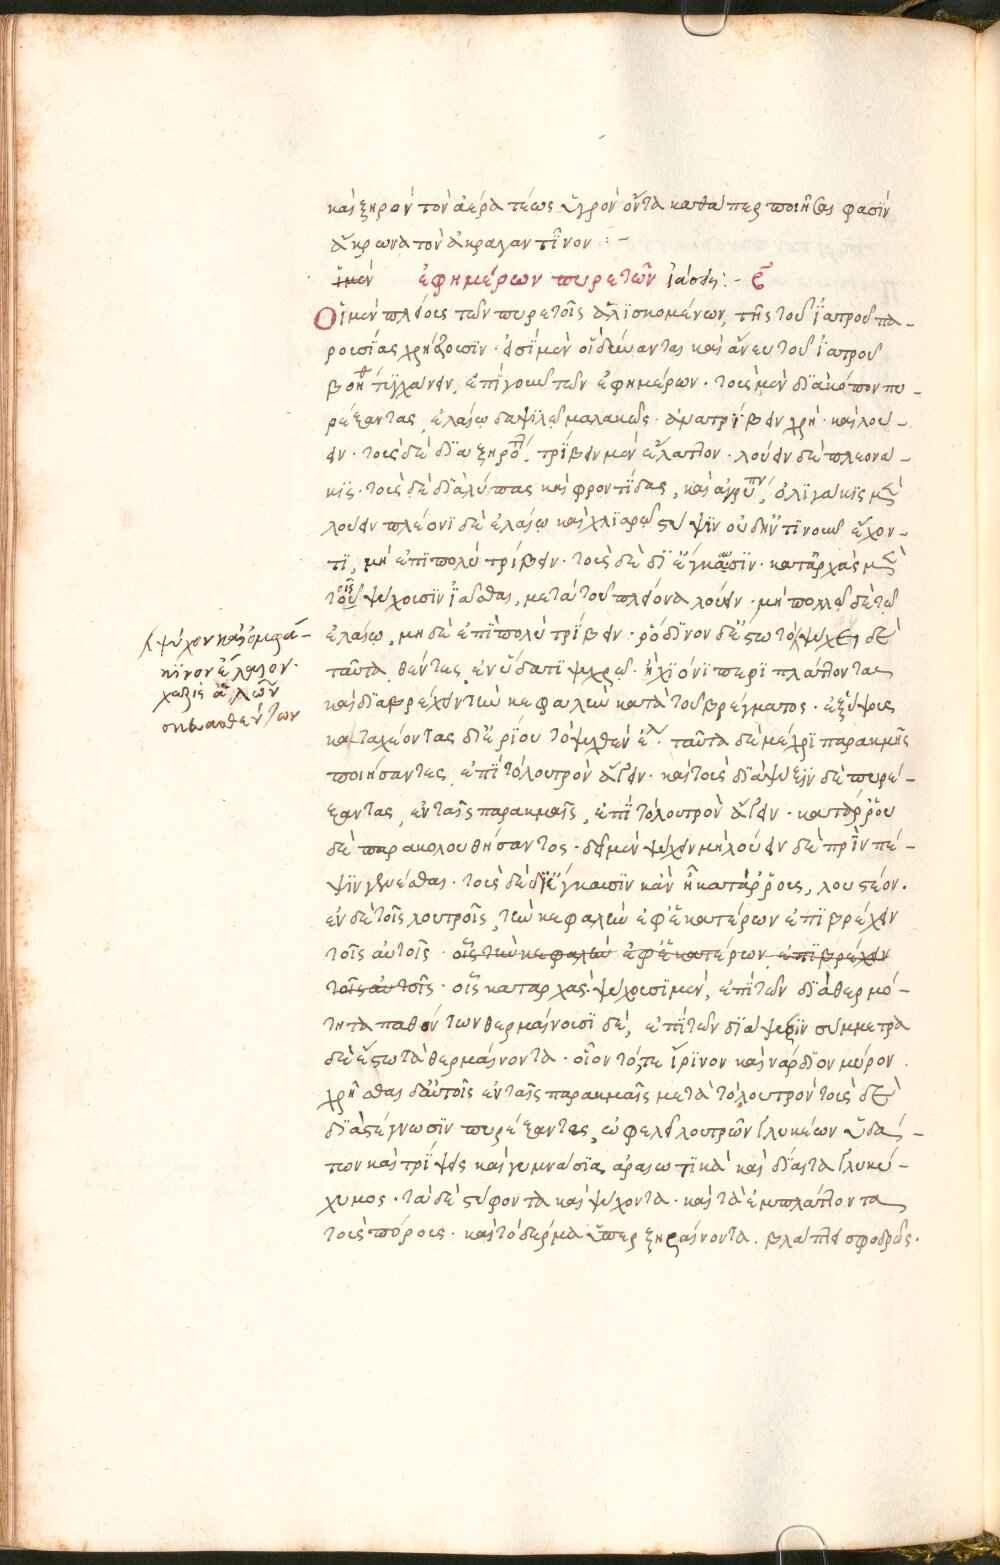 καὶ ξηρὸν τὸν ἀέρα τέως ὑγρὸν ὄντα καθάπερ ποιῆσαι φασὶν
ἄκρωνα τὸν ἀκραγαντῖνον :-
ἐφημέρων πυρετῶν ἰάσεις :-
Οἱ μὲν πλείους τῶν πυρετοῖς ἁλισκομένων, τῆς τοῦ ἰατροῦ πα-
ρουσίας χρήζουσιν· εἰσὶ μὲν οἳ δεύονται καὶ ἄνευ τοῦ ἰατροῦ
βοηθ τυγχάνειν, ἐπὶ γοῦν τῶν ἐφημέρων· τοὺς μὲν διὰ κόπον πυ-
ρέξαντας, ἐλαίῳ δαψιλῶ μαλακῶς· ἀνατρίβειν χρή· καὶ λού-
ειν· τοὺς δὲ διὰ ξηρό, τρίβειν μὲν ἔλαττον· λούειν δὲ πλεονά-
κις· τοὺς δὲ διὰ λύπας καὶ φροντίδας, καὶ ἀγρυπν, ὀλιγάκις μὲν
λούειν πλείονι δὲ ἐλαίῳ καὶ χλιαρῷ στύψιν οὐδ' ἥντιν οὖν ἔχον-
τι, μὴ ἐπιπολὺ τρίβειν· τοὺς δὲ δι' ἔγκαυσιν· κατ' ἀρχὰς μὲν
τοῖς ψύχουσιν ἰᾶσθαι, μετὰ τοῦ πλείονα λούειν· μὴ πολλῶ δὲ τῶ
ἐλαίῳ, μηδὲ ἐπιπολὺ τρίβειν· ῥόδινον δ' ἔστω τὸ ψῦχει δὲ
ψῦχον καὶ ὀμφά-
κινον ἔλαιον·
χωρὶς ἁλῶν
σκευασθέντων
ταῦτα, θέντες, ἐν ὕδατι ψυχρῷ· ἢ χιόνι περιπλάττοντας
καὶ διαβρέχειν τὴν κεφαλὴν κατὰ τοῦ βρέγματος· ἐξ ὕψους
καταχέοντας δι' ἐρίου τὸ ψυχθὲν ἔλ ταῦτα δὲ μέχρι παρακμῆς
ποιήσαντες, ἐπὶ τὸ λουτρὸν ἄγειν· καὶ τοὺς διὰ ψύξιν δὲ πυρέ-
ξαντας, ἐν ταῖς παρακμαῖς, ἐπὶ τὸ λουτρὸν ἄγειν· κατάρρου
δὲ παρακολουθήσαντος· δεῖ μὲν ψύχειν μὴ λούειν δὲ πρὶν πέ-
ψιν γενέσθαι· τοὺς δὲ δι' ἔγκαυσιν κἂν ᾖ κατάρρους, λουστέον·
ἐν δὲ τοῖς λουτροῖς, τὴν κεφαλὴν ἐφ' ἑκατέρων ἐπιβρέχειν
τοῖς αὐτοῖς· οἷς τὴν κεφαλὴν ἐφ' ἑκατέρων ἐπιβρέχειν
τοῖς αὐτοῖς· οἷς κατ' ἀρχὰς· ψύχουσι μὲν, ἐπὶ τῶν διὰ θερμό-
τητα παθόντων θερμαίνουσι δὲ, ἐπὶ τῶν διὰ ψύξιν σύμμετρα
δὲ ἔστω τὰ θερμαίνοντα· οἷον τό, τε ἴρινον καὶ νάρδιον μύρον
χρῆσθαι δ' αὐτοῖς ἐν ταῖς παρακμαῖς μετὰ τὸ λουτρὸν τοὺς δὲ
διὰ στέγνωσιν πυρέξαντας, ὠφελεῖ λουτρῶν γλυκέων ὑδά-
των καὶ τρίψεις καὶ γυμνάσια ἀραιωτικὰ καὶ δίαιτα γλυκύ-
χυμος· τὰ δὲ στύφοντα καὶ ψύχοντα· καὶ τὰ ἐμπλάττοντα
τοὺς πόρους· καὶ τὸ δέρμα ὑπερξηραίνοντα. βλάπτει σφοδρῶς·